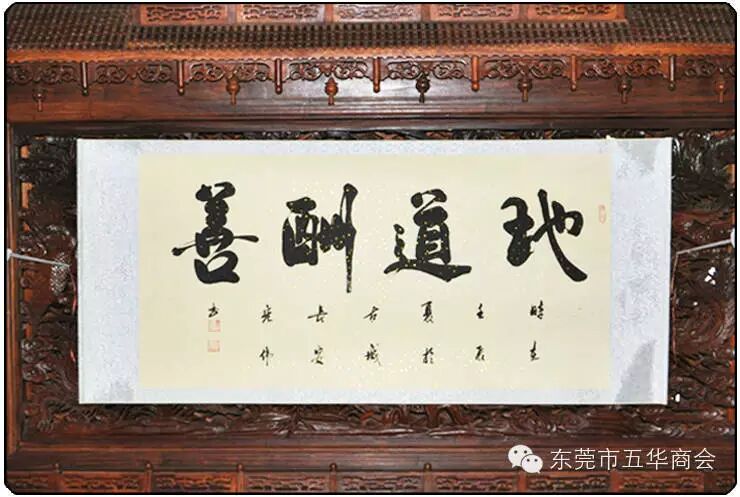 地道酬善
時在
壬辰
夏於
古城
長安
伟
书
东莞市五华商会